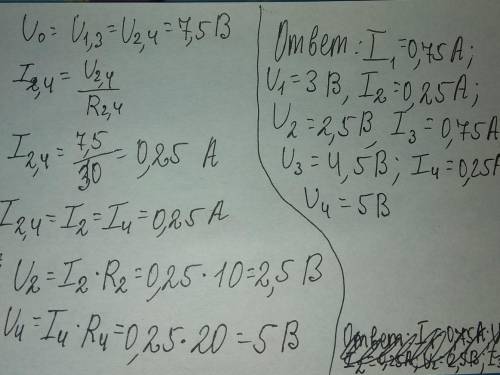 U₀ = U₁,₃ = U₂,₄ = 7,5 В
I₂,₄ = U₂,₄ / R₂,₄
I₂,₄ = 7,5 / 30 = 0,25 А
I₂,₄ = I₂ = I₄ = 0,25 А
U₂ = I₂ · R₂ = 0,25 · 10 = 2,5 В
U₄ = I₄ · R₄ = 0,25 · 20 = 5 В
Ответ: I₁ = 0,75 А;
U₁ = 3 В, I₂ = 0,25 А;
U₂ = 2,5 В, I₃ = 0,75 А
U₃ = 4,5 В; I₄ = 0,25 А
U₄ = 5 В
Ответ: I